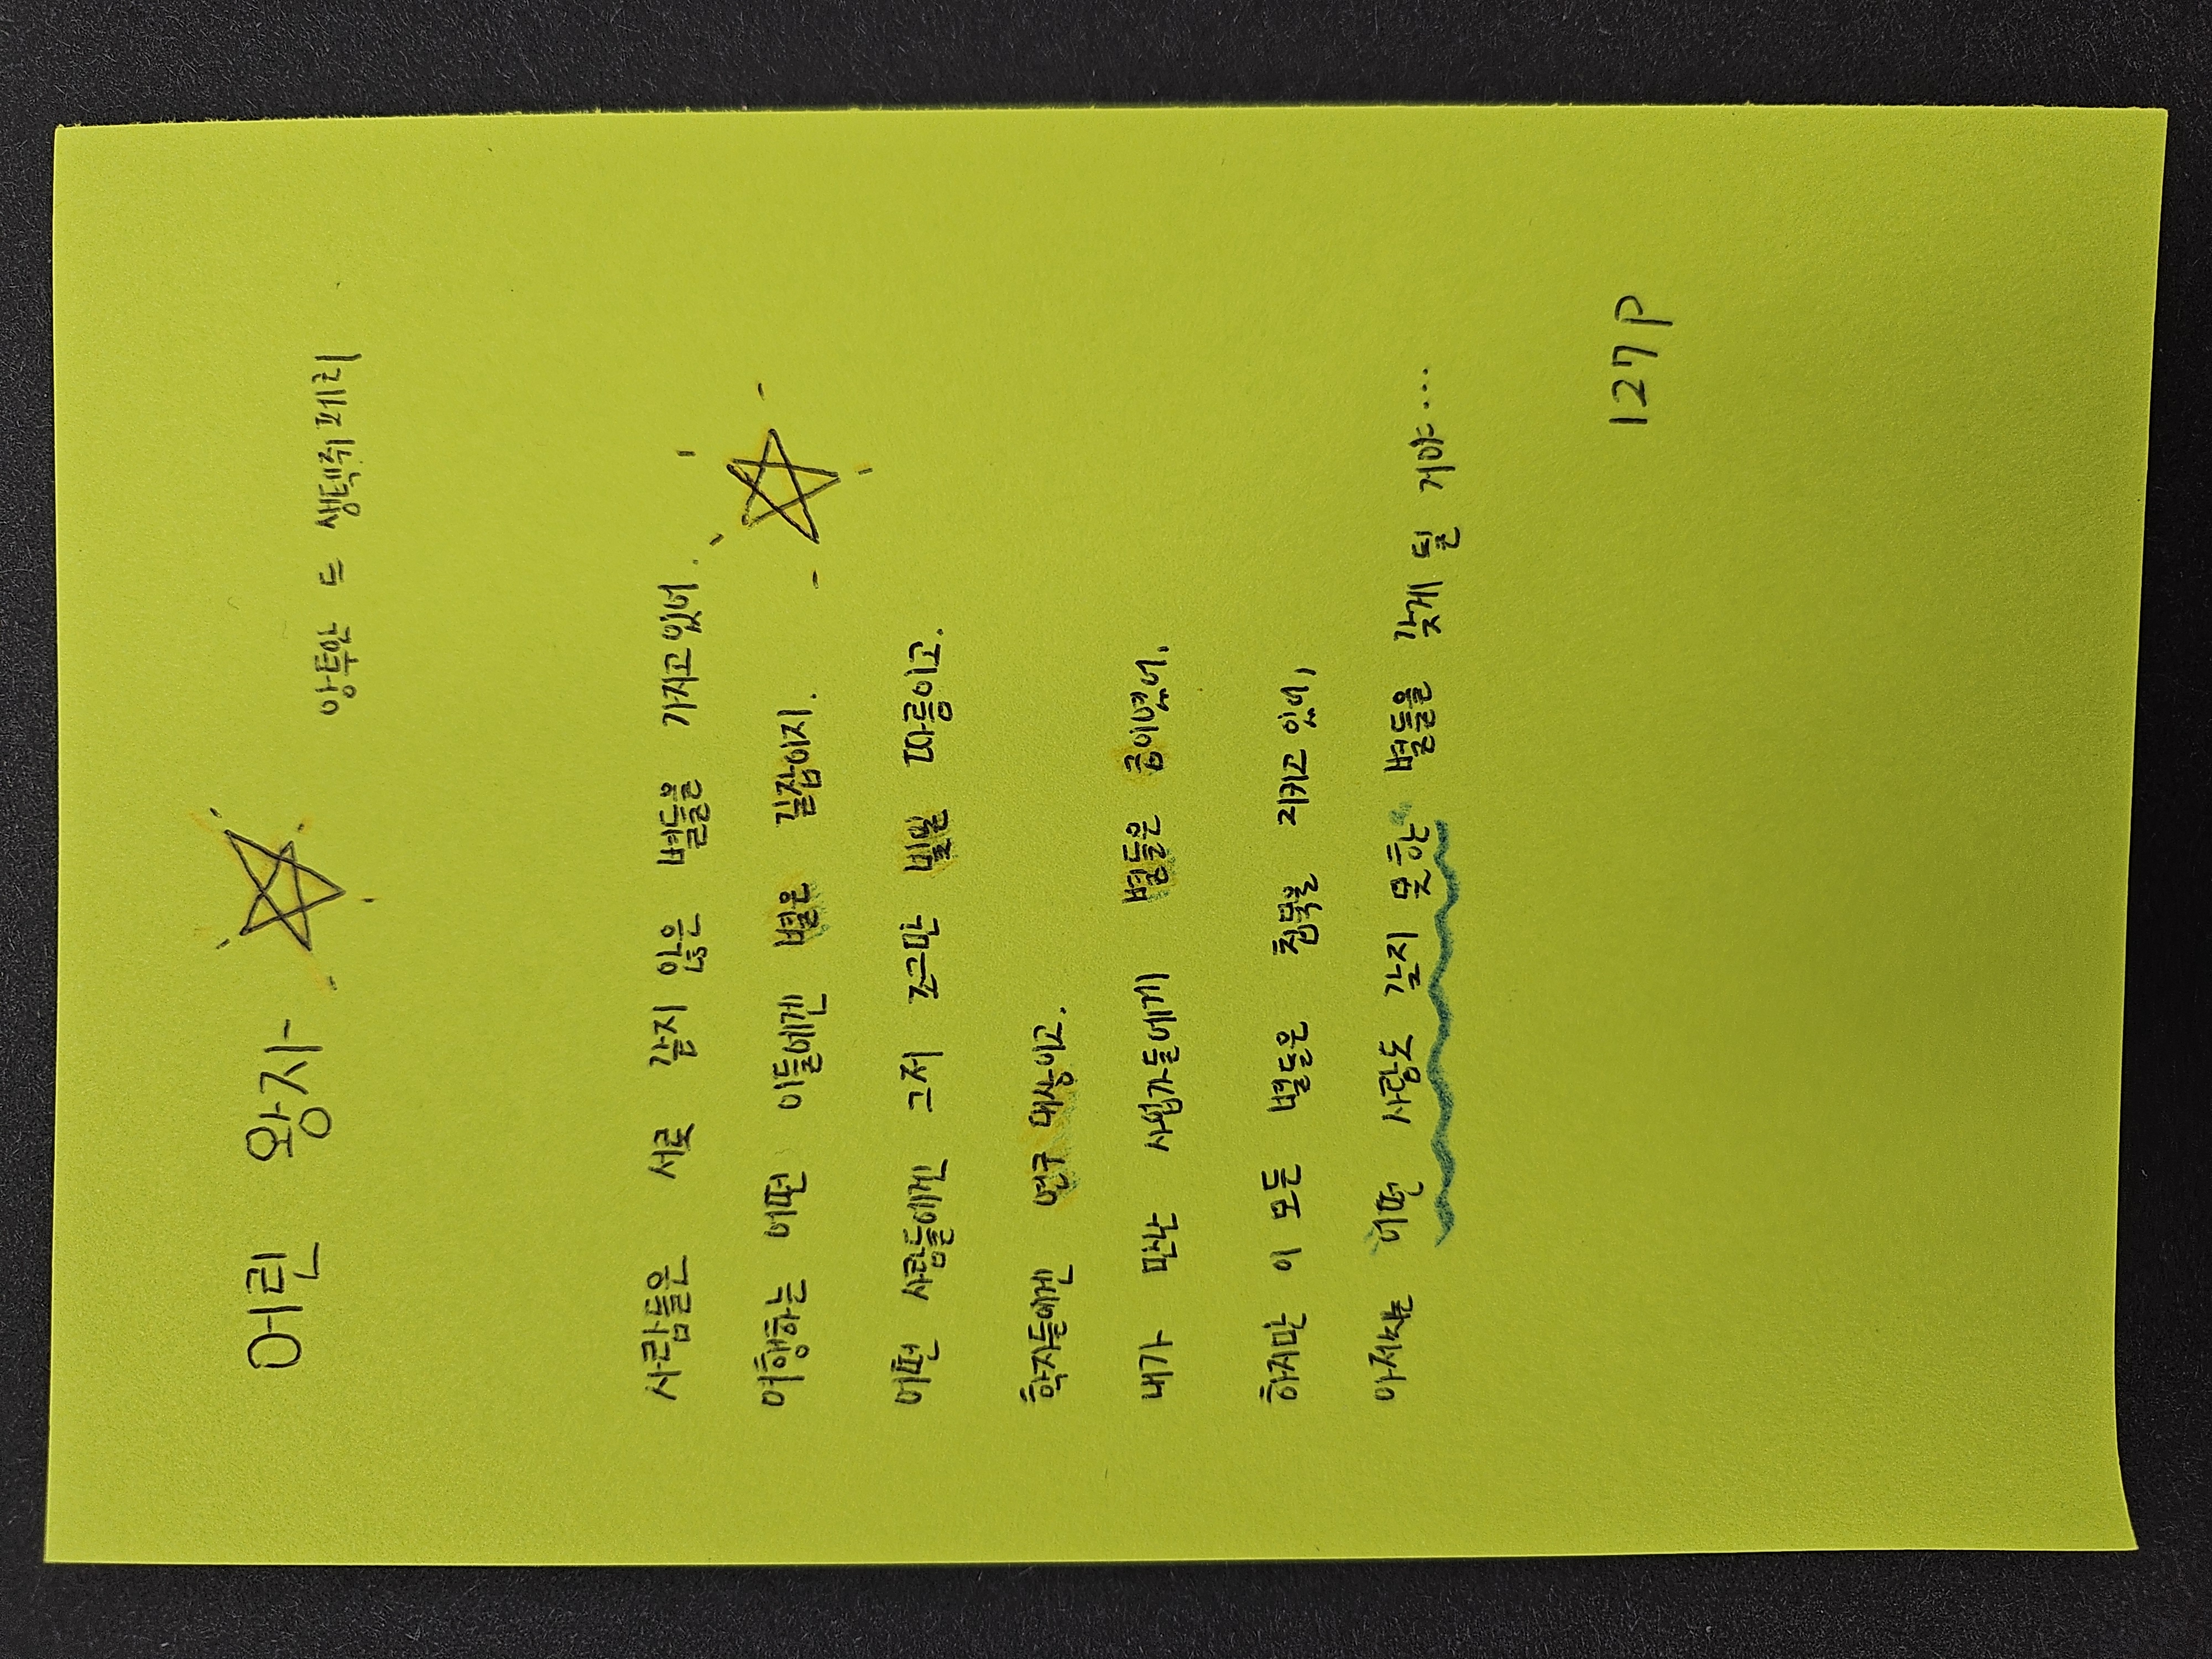 어린 왕자
앙투안 드 생텍쥐페리
사람들은 서로 같지 않은 별들을 가지고 있어.
여행하는 어떤 이들에겐 별은 길잡이지.
어떤 사람들에겐 그저 조그만 빛일 따름이고.
학자들에겐 연구 대상이고.
내가 만난 사업가들에게 별들은 금이었어.
하지만 이 모든 별들은 침묵을 지키고 있어,
아저씨는 어떤 사람도 갖지 못한 별들을 갖게 될 거야....
127P